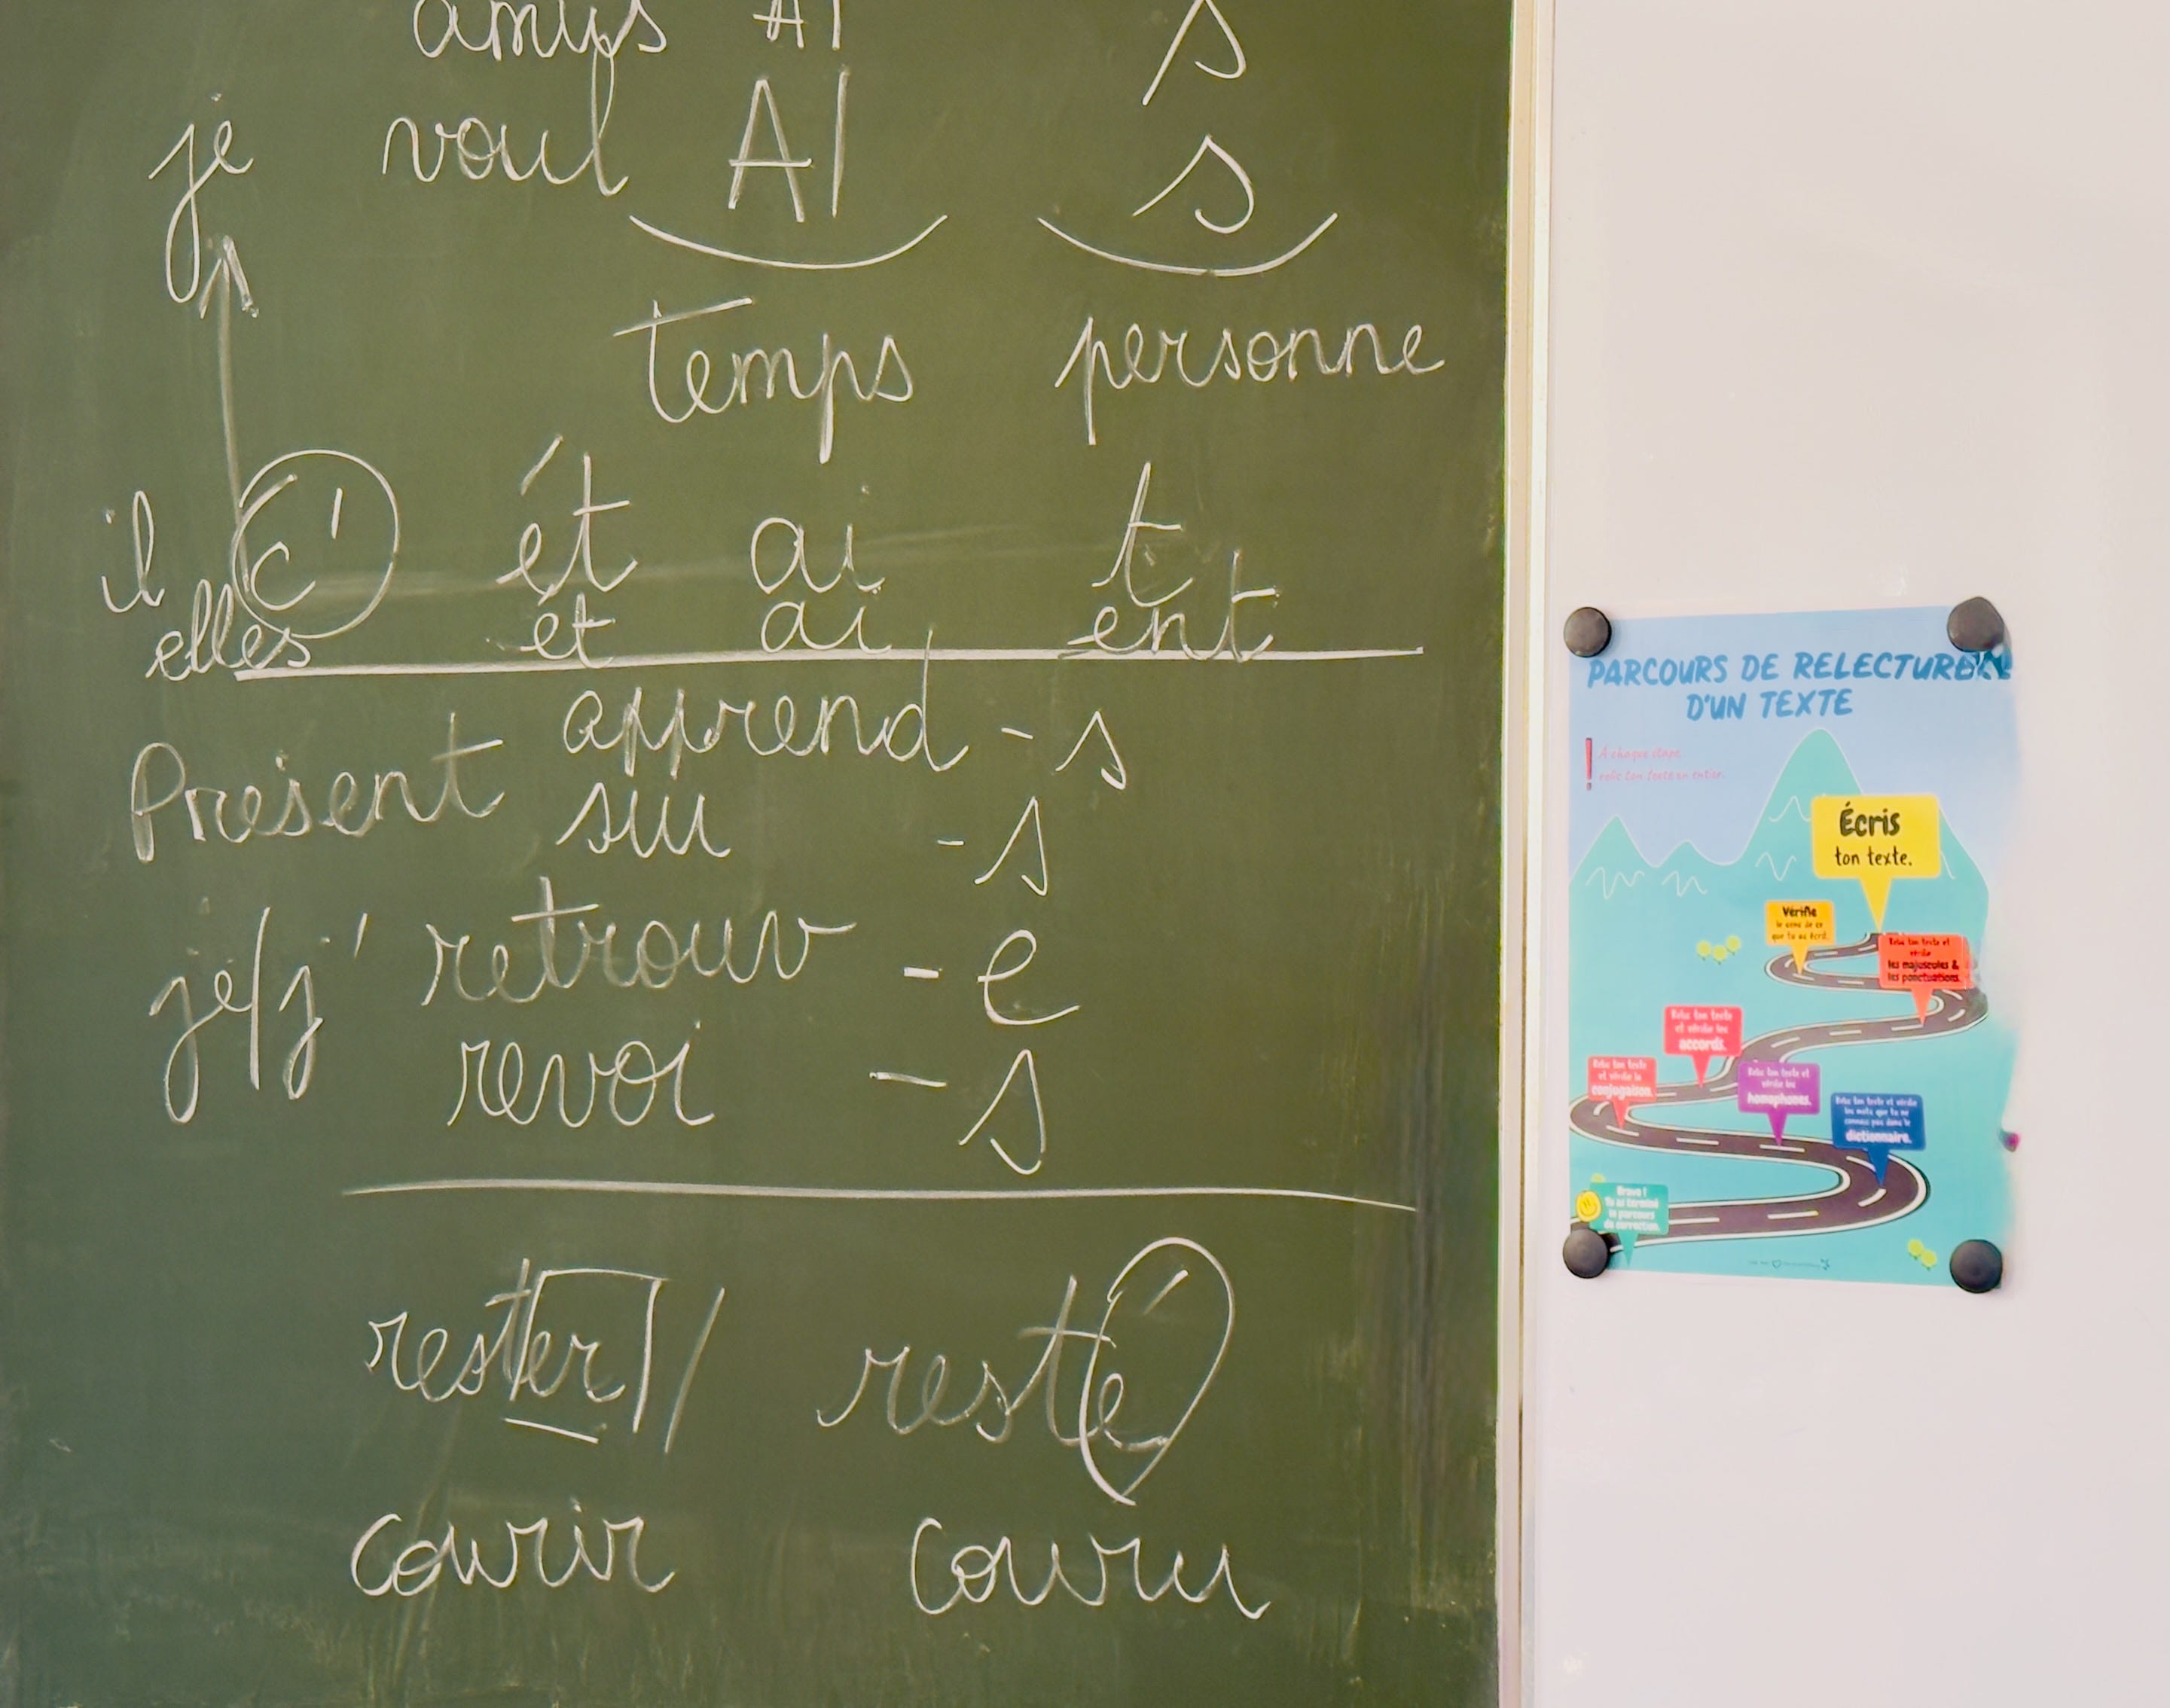 AI s
je voul AI s
temps personne
il c' ét ai t
elles ét ai ent
apprend - s
Présent sui - s
je/j' retrouv - e
revoi - s
rester // resté
courir couru
PARCOURS DE RELECTURE
D'UN TEXTE
! A chaque étape,
relis ton texte en entier.
Écris
ton texte.
Vérifie
le sens de ce
que tu as écrit.
Relis ton texte et
vérifie
les majuscules &
les ponctuations.
Relis ton texte
et vérifie les
accords.
Relis ton texte
et vérifie la
conjugaison.
Relis ton texte et
vérifie les
homophones.
Relis ton texte et vérifie
les mots que tu ne
connais pas dans le
dictionnaire.
Bravo !
Tu as terminé
le parcours
de correction.